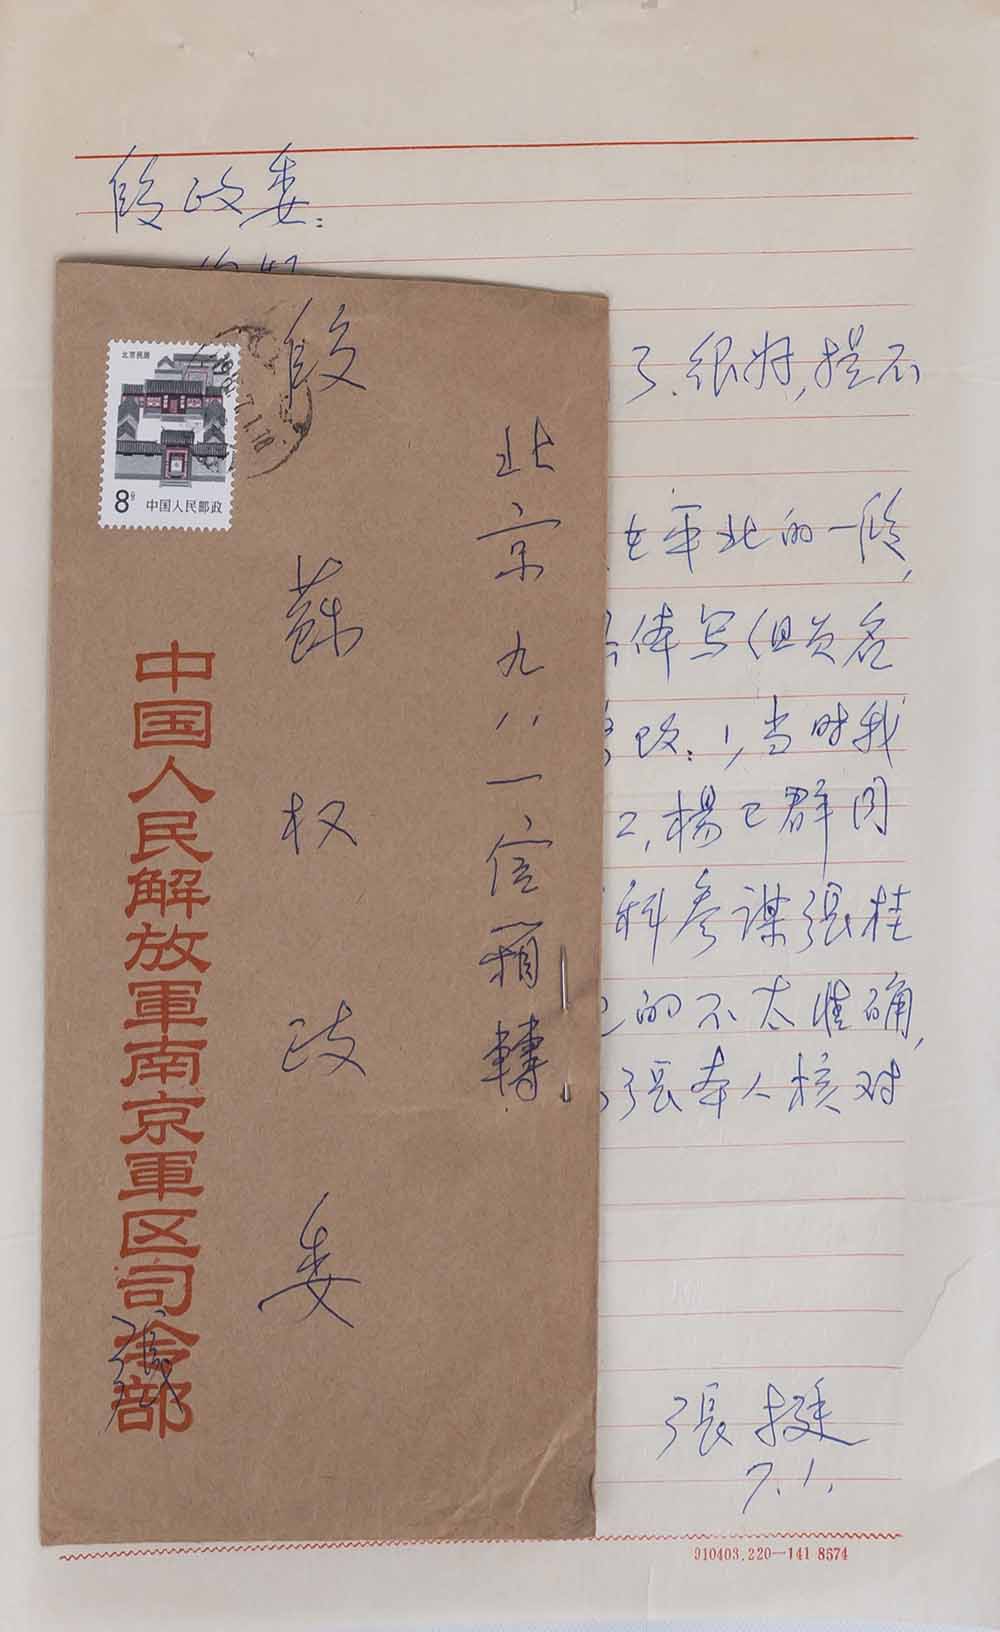 段政委：
了.很好,提不
在平北的一段,
具体写（但员名
改：1,当时我
2,楊已群同
科参谋張桂
的不太准确,
張本人核对
張挺
7.1.
910403.220—141 8574
北京民居
8分 中国人民邮政
北京九八一信箱轉
段蘇权政委
中国人民解放軍南京軍区司令部
張